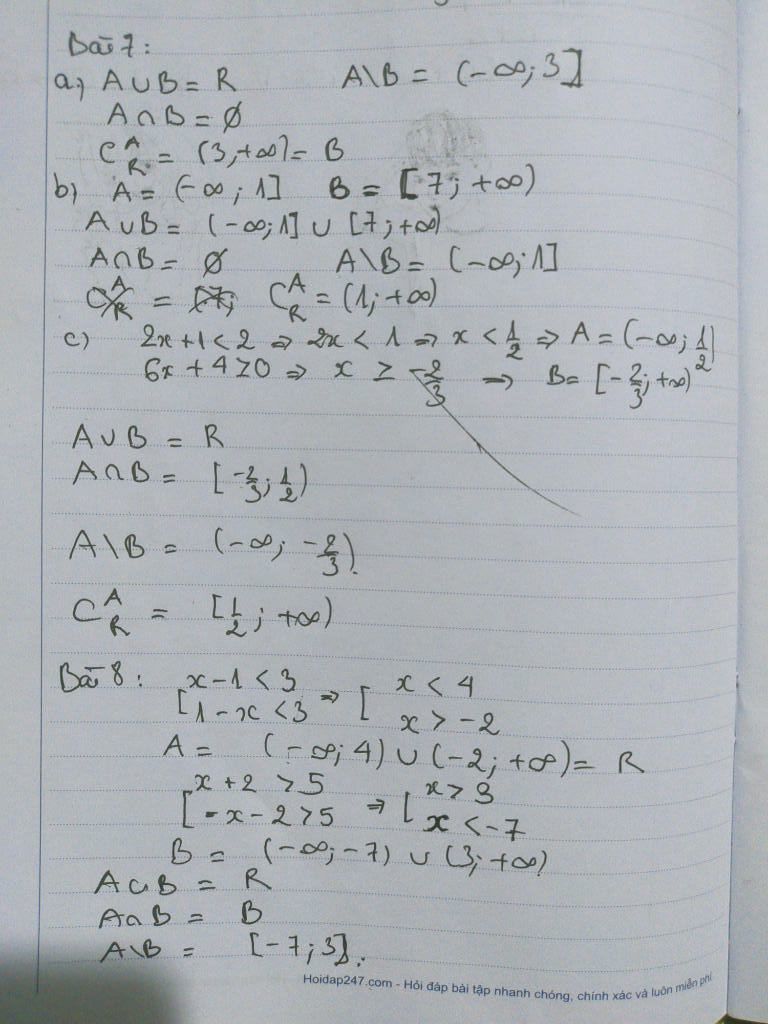 Bài 7:
a, A∪B = R A\B = (-∞; 3]
A∩B = ∅
C^A_R = (3, +∞) = B
b) A = (-∞; 1] B = [7; +∞)
A∪B = (-∞; 1] ∪ [7; +∞)
A∩B = ∅ A\B = (-∞; 1]
C^A_R = [7; C^A_R = (1; +∞)
c) 2x+1<2 ⇒ 2x < 1 ⇒ x < 1/2 ⇒ A = (-∞; 1/2)
6x + 4 ≥ 0 ⇒ x ≥ -2/3 ⇒ B = [-2/3; +∞)
A∪B = R
A∩B = [-2/3; 1/2)
A\B = (-∞; -2/3).
C^A_R = [1/2; +∞)
Bài 8: [ x-1 < 3 ⇒ [ x < 4
1-x < 3 x > -2
A = (-∞; 4) ∪ (-2; +∞) = R
[ x+2 > 5 ⇒ [ x > 3
-x-2 > 5 x < -7
B = (-∞; -7) ∪ (3; +∞)
A∪B = R
A∩B = B
A\B = [-7; 3].
Hoidap247.com - Hỏi đáp bài tập nhanh chóng, chính xác và luôn miễn phí